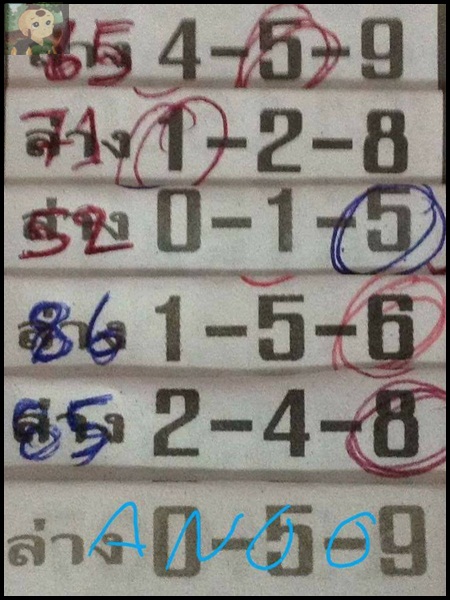 ล่าง 65 4-5-9
ล่าง 71 1-2-8
ล่าง 52 0-1-5
ล่าง 86 1-5-6
ล่าง 85 2-4-8
ล่าง 0-5-9 ANOO